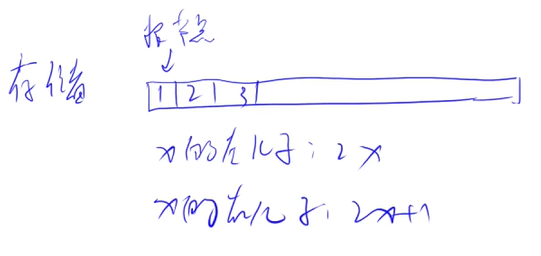 根节点
存储
1 2 3
x的左儿子: 2x
x的右儿子: 2x+1